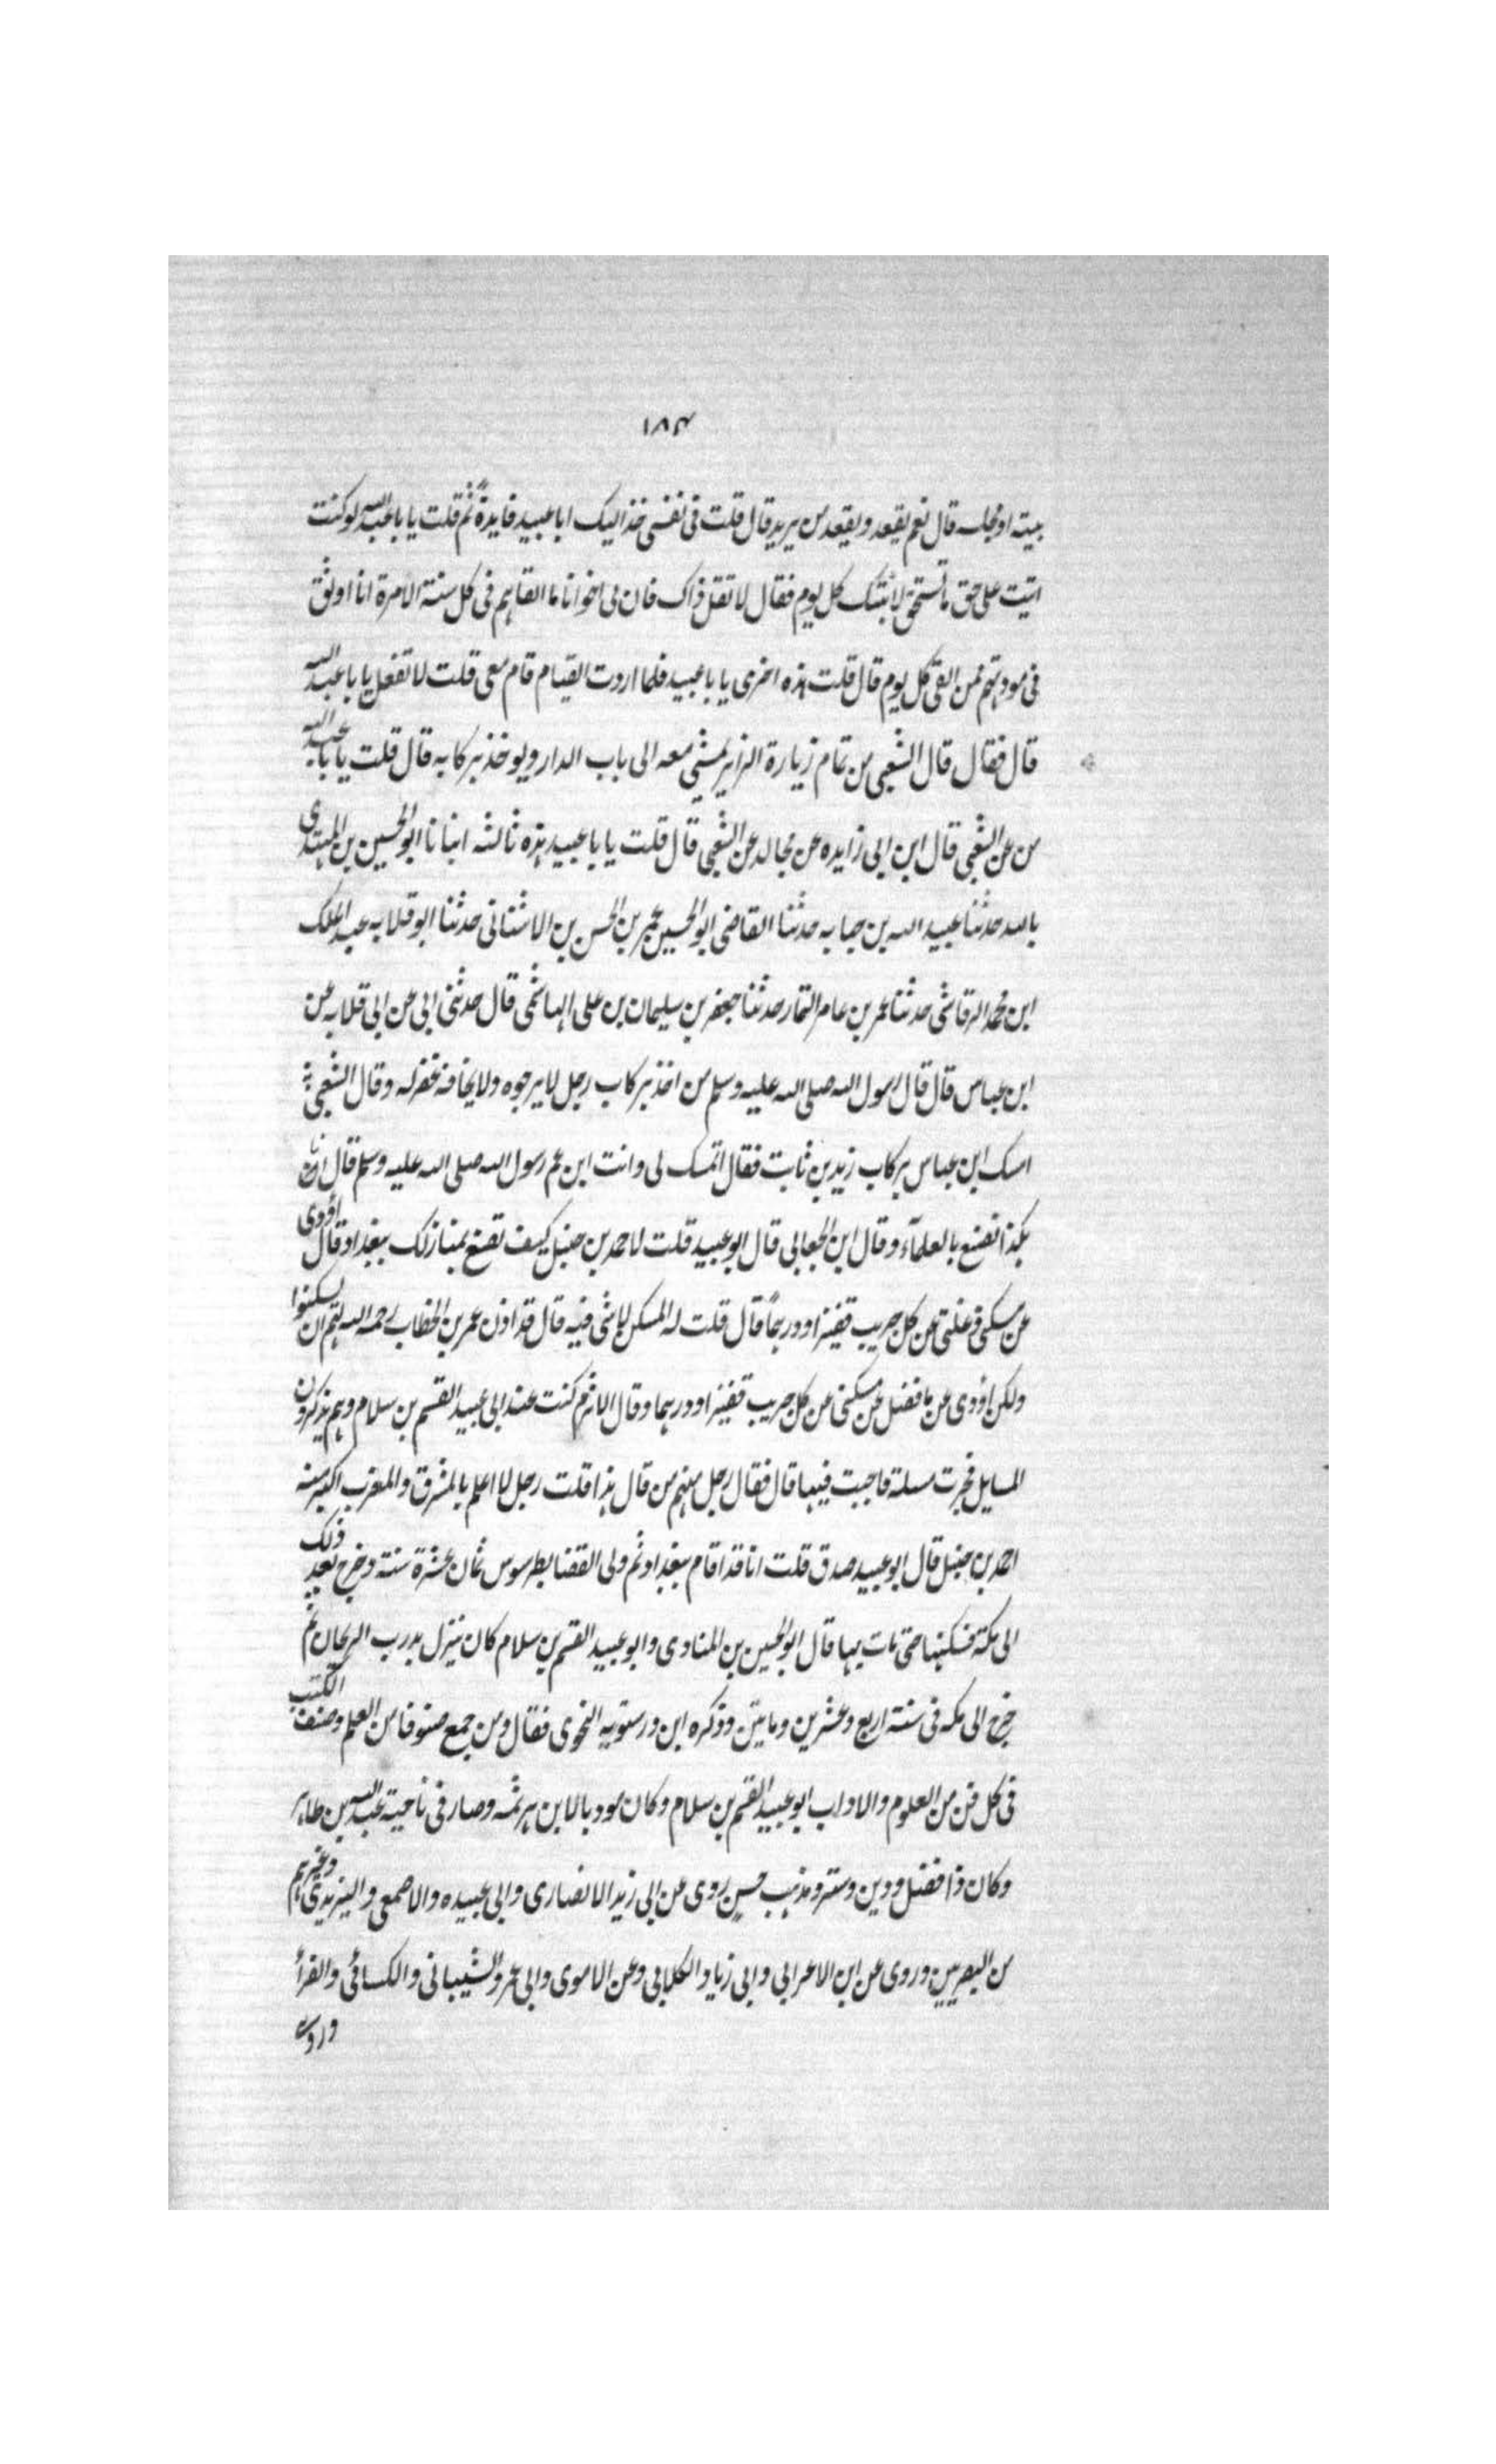 ١٨٣
بيته او مجلسه قال نعم يقعد ويقعد من يريد قال قلت فى نفسى خذ اليك ابا عبيد فايدةً ثم قلت يا با عبد الله لو كنت
اتيت على حق ما تستحق لاتيتك كل يوم فقال لا تقل ذاك فان لى اخوانا ما القاهم فى كل سنة الامرة انا اوثق
فى مودتهم ممن القى كل يوم قال قلت هذه اخرى يا با عبيد فلما اردت القيام قام معى قلت لا تفعل يا با عبد الله
قال فقال قال الشعبى من تمام زيارة الزاير يمشى معه الى باب الدار ويوخذ بركابه قال قلت يا با عبد الله
من عن الشعبى قال ابن ابى زايده عن مجالد عن الشعبى قال قلت يا با عبيد هذه ثالثه انبانا ابو الحسين بن المهتدى
بالله حدثنا عبيد الله بن حبابه حدثنا القاضى ابو الحسين عمر بن الحسن بن الاشنانى حدثنا ابو قلابه عبد الملك
ابن محمد الرقاشى حدثنا عمر بن عامر التمار حدثنا جعفر بن سليمان بن على الهاشمى قال حدثنى ابى عن ابى قلابه عن
ابن عباس قال قال رسول الله صلى الله عليه وسلم من اخذ بركاب رجل لا يرجوه ولا يخافه غفر له وقال الشعبى
امسك ابن عباس بركاب زيد بن ثابت فقال اتمسك لى وانت ابن عم رسول الله صلى الله عليه وسلم قال انا
هكذا نصنع بالعلمآء وقال ابن الجعابى قال ابو عبيد قلت لاحمد بن حنبل كيف تصنع بمنازلك ببغداد قال اؤدى
عن مسكنى وغلتى عن كل جريب قفيزا ودرهماً قال قلت له المسكن لا شى فيه قال قد اذن عمر بن الخطاب رحمه الله لهم ان يسكنوا
ولكن اؤدى عن ما فضل عن مسكنى عن كل جريب قفيزا ودرهما وقال الاثرم كنت عند ابى عبيد القسم بن سلام وهم يذكرون
المسايل فجرت مسلة فاجبت فيها قال فقال رجل منهم من قال هذا قلت رجل لا اعلم بالمشرق والمغرب اكبر منه
احمد بن حنبل قال ابو عبيد صدق قلت انا قد اقام ببغداد ثم ولى القضا بطرسوس ثمان عشرة سنة وخرج بعد ذلك
الى مكة فسكنها حتى مات بها قال ابو الحسين بن المنادى وابو عبيد القسم بن سلام كان ينزل بدرب الريحان ثم
خرج الى مكه فى سنة اربع وعشرين وماتين وذكره ابن درستويه النحوى فقال ومن جمع صنوفا من العلم وصنف الكتب
فى كل فن من العلوم والاداب ابو عبيد القسم بن سلام وكان مودبا لابن هرثمه وصار فى ناحية عبد الله بن طاهر
وكان ذا فضل ودين وستر ومذهب حسن روى عن ابى زيد الانصارى وابى عبيده والاصمعى واليزيدى وغيرهم
من البصريين وروى عن ابن الاعرابى وابى زياد الكلابى وعن الاموى وابى عمرو الشيبانى والكسائى والفرأ
وروى